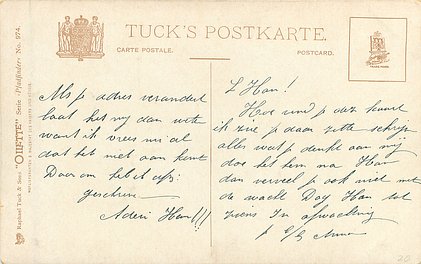 TUCK'S POSTKARTE.
CARTE POSTALE.
POSTCARD.
TRADE MARK
Raphael Tuck & Sons' "OILETTE" Serie „Pfadfinder" No. 974
Als p adres verandert
laat het mij dan
want ik vrees
dat het niet aan komt
Daarom heb ik
geschreven
Adieu Han!!!
L Han!
Hoe vind p deze kaart
ik zie p daar zitte schrijve
alles wat p denkt aan mij
doe het hem na Han
dan verveel p ook niet met
de wacht Dag Han tot
ziens In afwachting
20